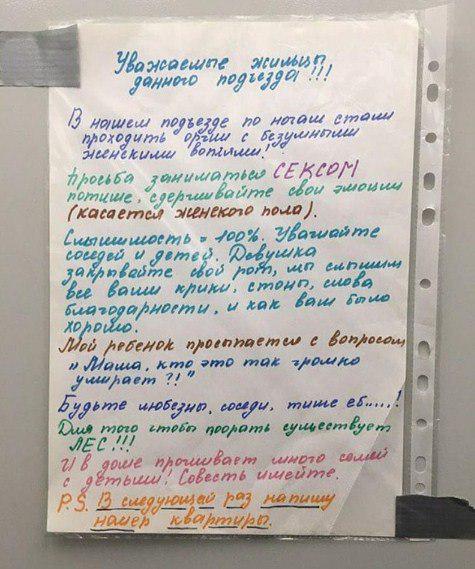 Уважаемые жильцы
данного подъезда!!!
В нашем подъезде по ночам стали
проходить оргии с безумными
женскими воплями!
Просьба заниматься СЕКСОМ
потише, сдерживайте свои эмоции
(касается женского пола).
Слышимость = 100%. Уважайте
соседей и детей. Девушка
закрывайте свой рот, мы слышим
все ваши крики, стоны, слова
благодарности, и как вам было
хорошо.
Мой ребенок просыпается с вопросом
"Мама, кто это так громко
умирает?!"
Будьте любезны, соседи, тише еб.....!
Для того чтобы поорать существует
ЛЕС!!!
И в доме проживает много семей
с детьми! Совесть имейте.
P.S. В следующей раз напишу
номер квартиры.